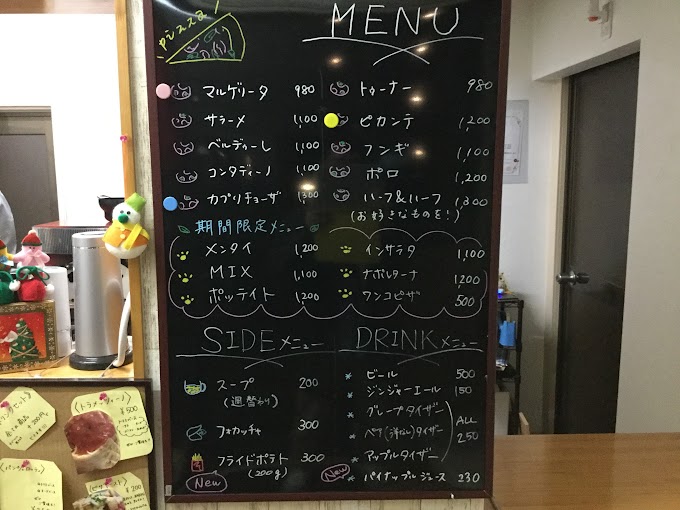 MENU
マルゲリータ 980
サラーメ 1,100
ベルディーし 1,100
コンタディーノ 1,100
カプリチョーザ 1,300
トゥーナー 980
ピカンテ 1,200
フンギ 1,100
ポロ 1,200
ハーフ&ハーフ 1,300
(お好きなものを!)
期間限定メニュー
メンタイ 1,200
MIX 1,100
ポッテイト 1,200
インサラタ 1,100
ナポルターナ 1,200
ワンコピザ 500
SIDEメニュー
スープ 200
(週替わり)
フォカッチャ 300
フライドポテト 300
(200g)
New
DRINKメニュー
* ビール 500
* ジンジャーエール 150
* グレープタイザー
* ペア(洋なし)タイザー
* アップルタイザー
ALL
250
New
* パイナップルジュース 230
¥500
¥200